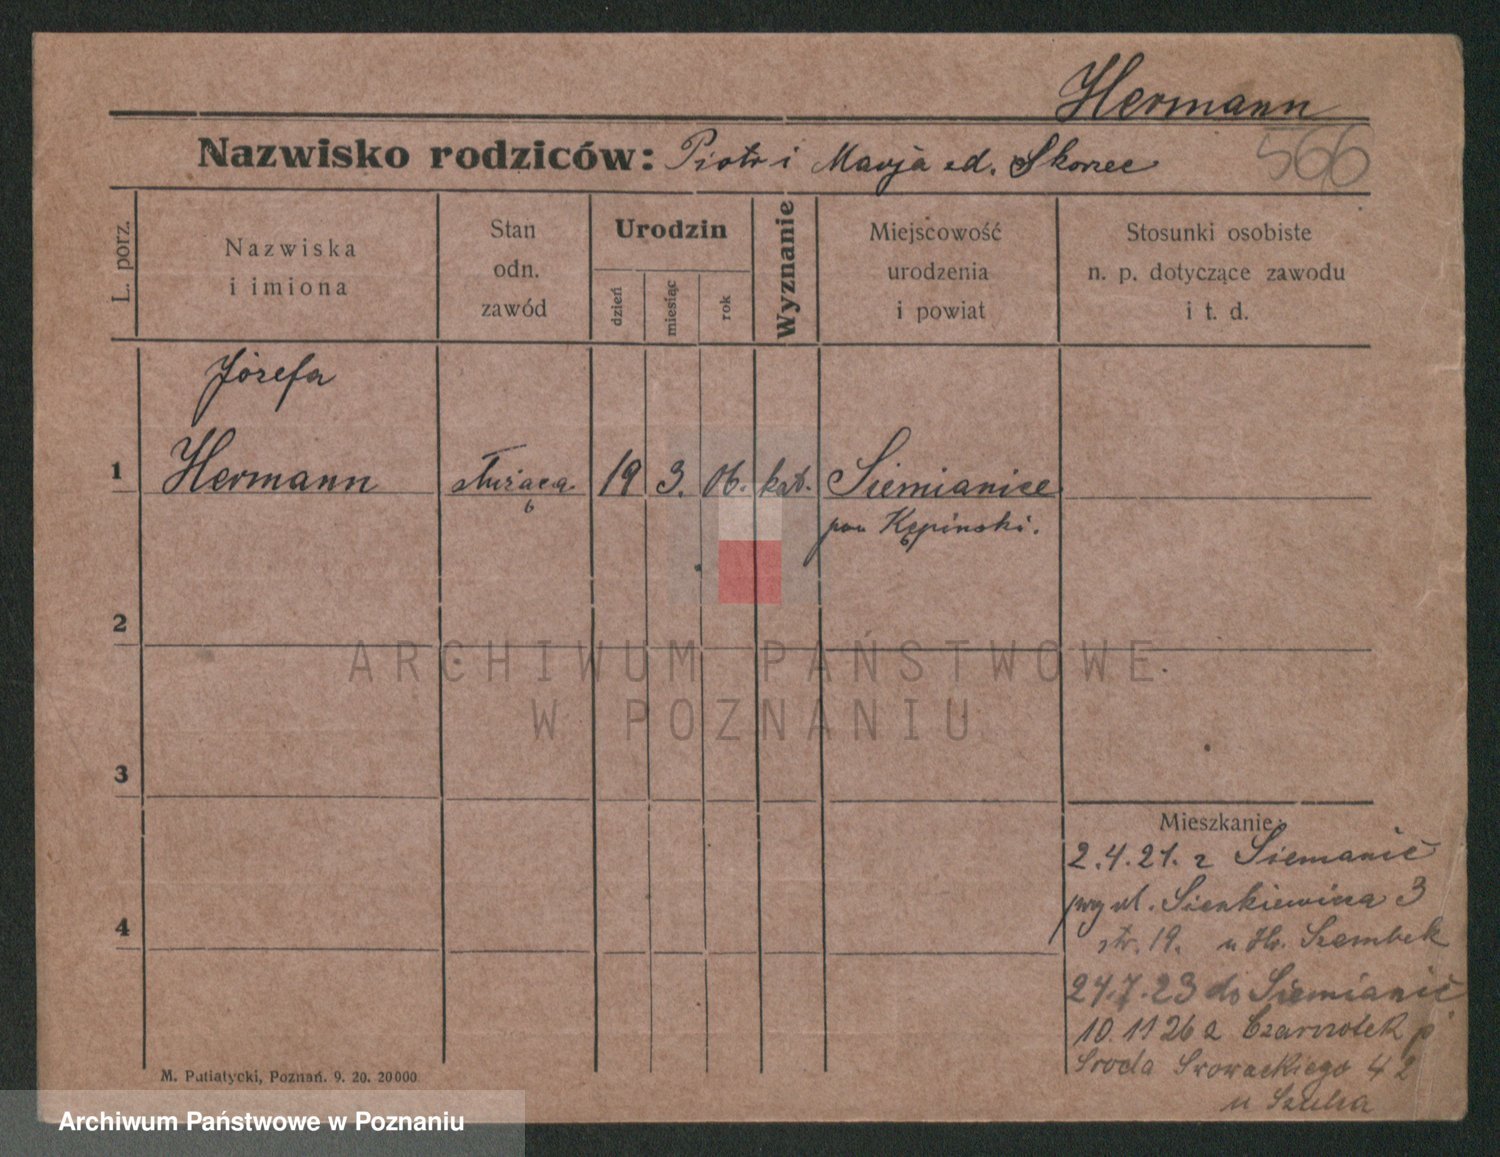 Hermann
Nazwisko rodziców: Piotr i Marja zd. Skorzec
566
L. porz.
Nazwiska
i imiona
Stan
odn.
zawód
Urodzin
dzień
miesiąc
rok
Wyznanie
Miejscowość
urodzenia
i powiat
Stosunki osobiste
n. p. dotyczące zawodu
i t. d.
Józefa
1 Hermann służąca 19 3. 06. kat. Siemianice
pow Kępiński.
2
ARCHIWUM PAŃSTWOWE
W POZNANIU
3
Mieszkanie:
2.4.21. z Siemanic
przy ul. Sienkiewicza 3
4
str. 19. u Hr. Szembek
24.7.23 do Siemianic
10.11 26 z Czarnotek p
Sroda Słowackiego 42
u Szulca
M. Putiatycki, Poznań. 9. 20. 20000
Archiwum Państwowe w Poznaniu